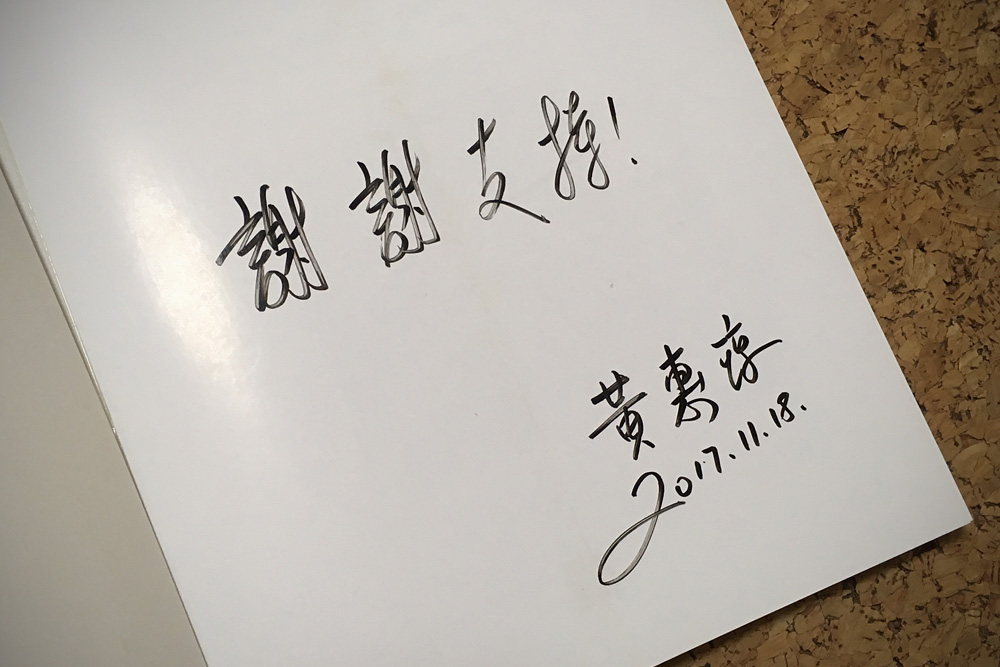 謝謝支持!
黃惠淳
2017.11.18.